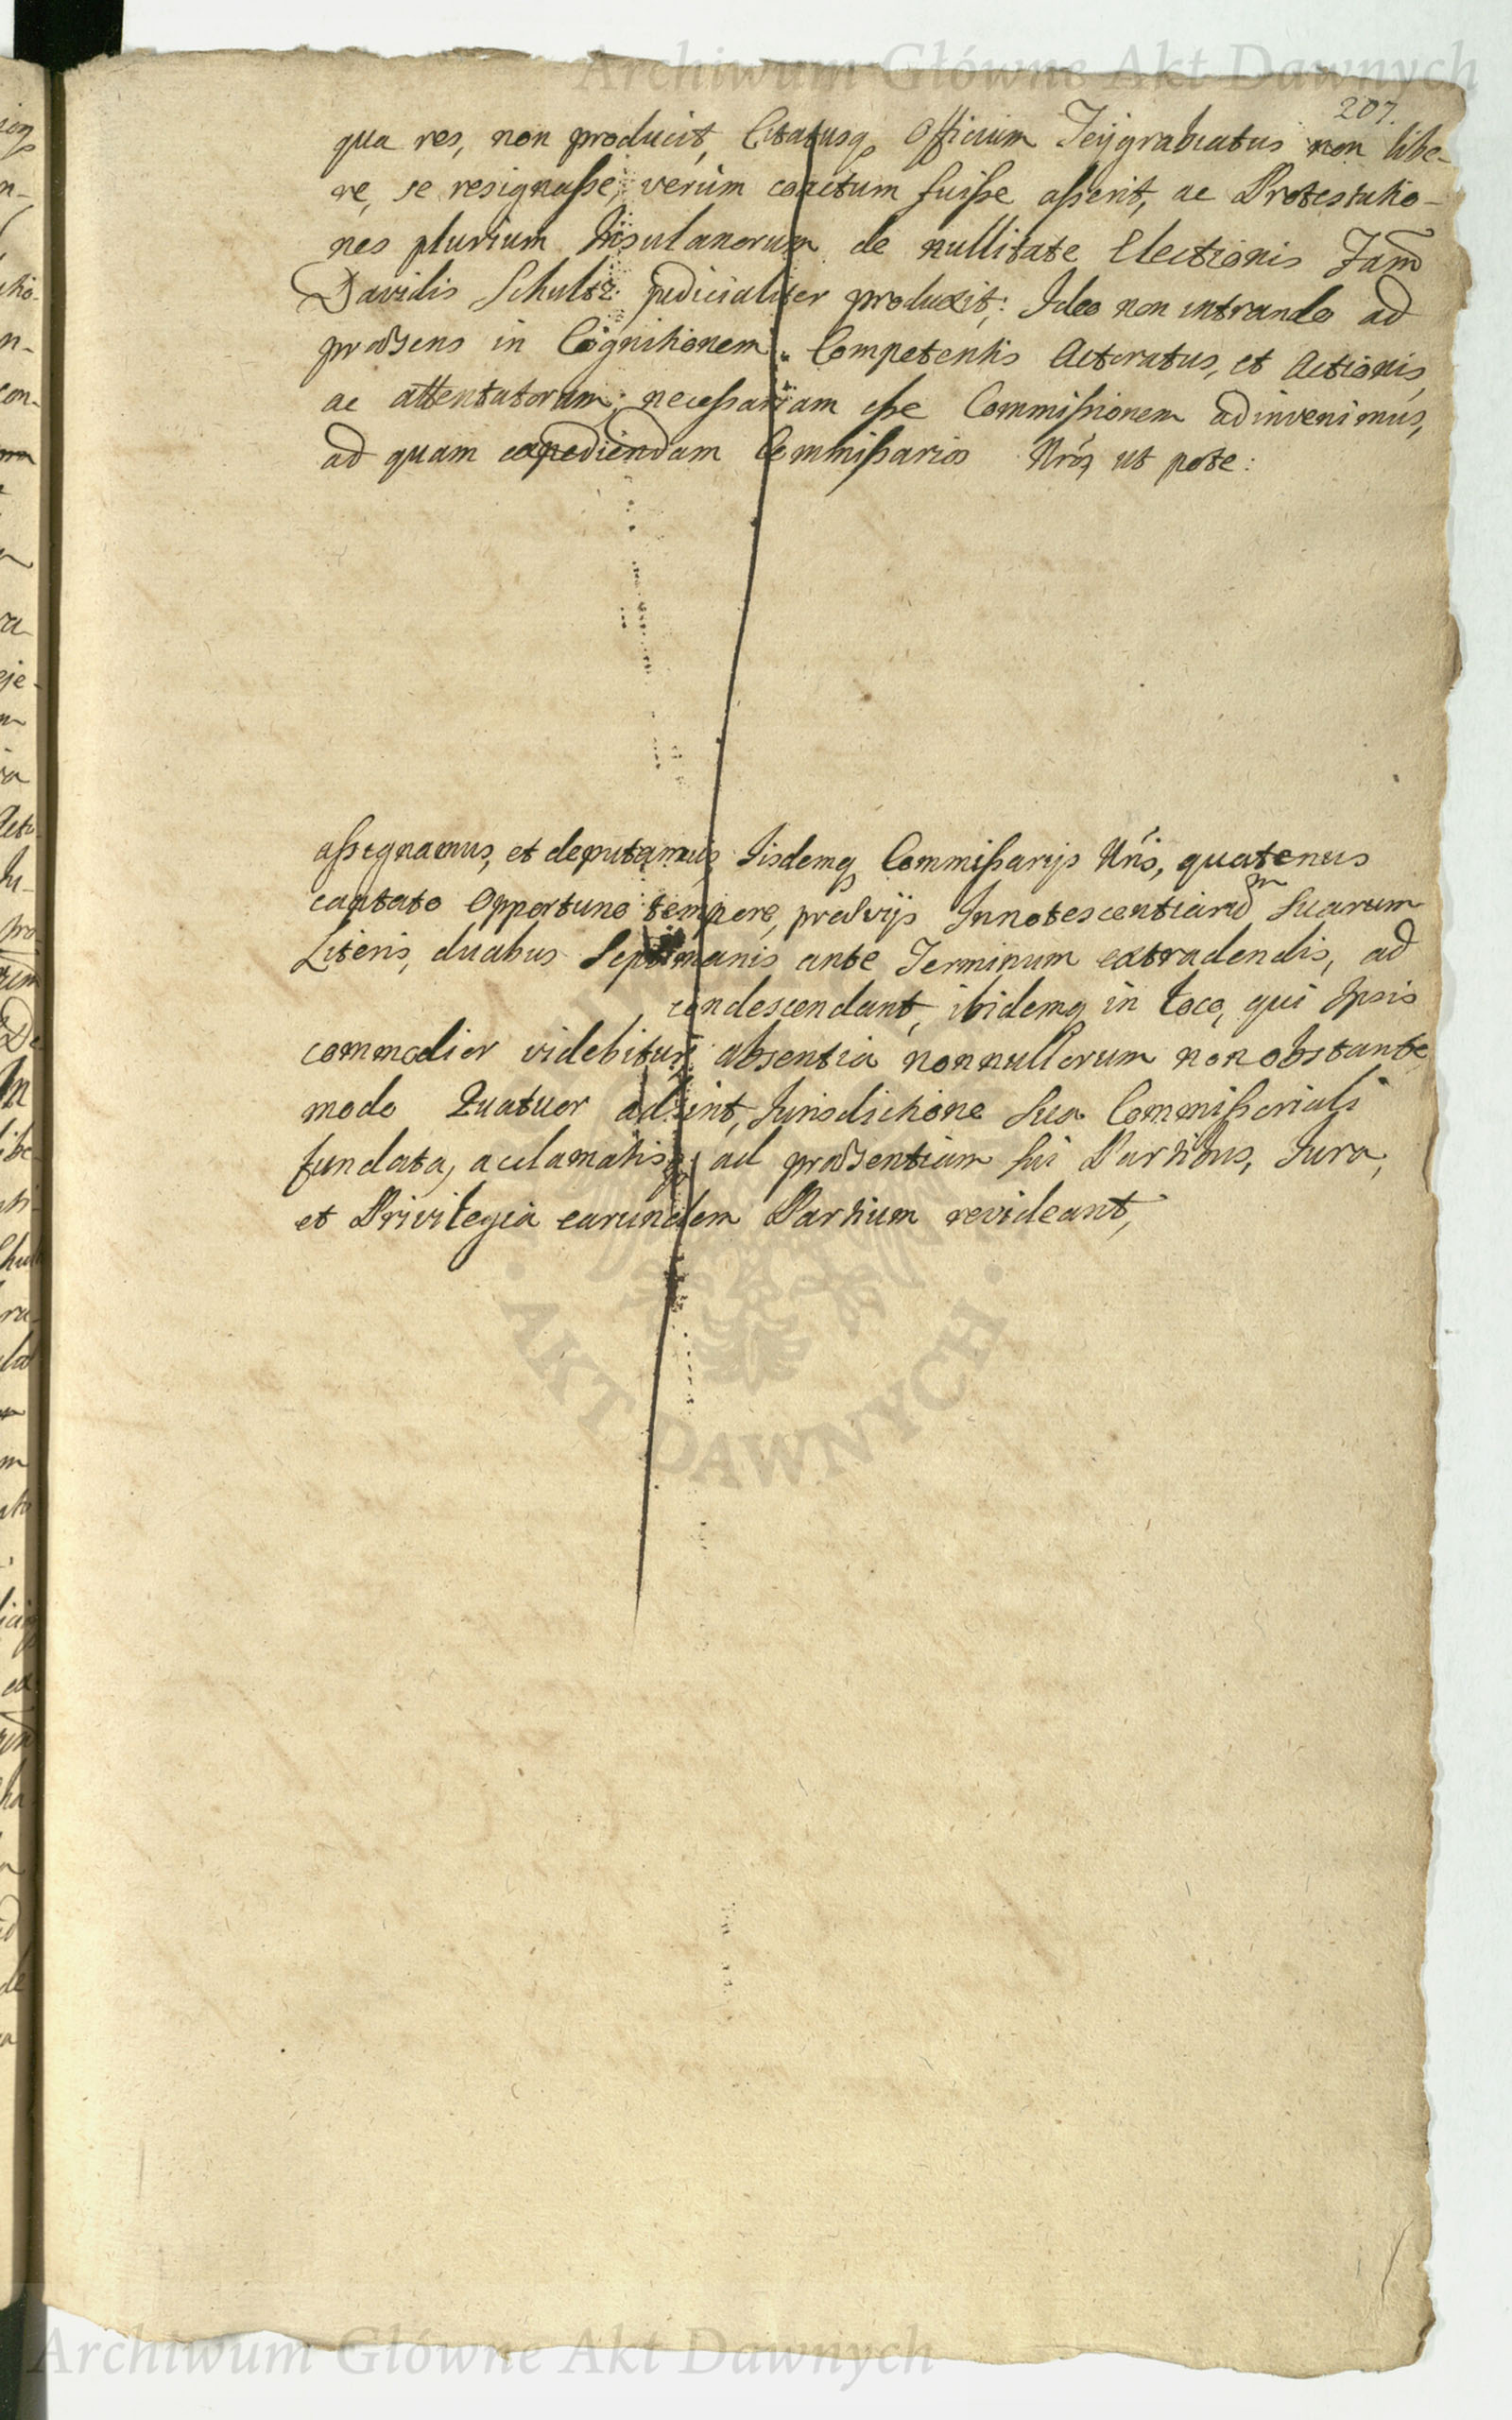 Archiwum Główne Akt Dawnych
207.
qua res, non producit, Citatusq Officium Teÿgrabiatus non libe-
re, se resignaſse, verùm coactum fuiſse aſserit, ac Protestatio-
nes plurium Insulanorum de nullitate Electionis Fam
Davidis Schultz judicialiter produxit; Ideo non intrando ad
præsens in Cognitionem Competentis Actoratus, et Actionis,
ac attentatorum; neceſsariam eſse Commiſsionem adinvenimus,
ad quam expediendam Commiſsarios Nrós ut pote:
aſsignamus, et deputamus, Iisdemq Commiſsarijs Nrís, quatenus
captato opportuno tempore, prævijs Innotescentiarum Suarum
Literis, duabus Septimanis ante Terminum extradendis, ad
condescendant, ibidemq in loco, qui Ipsis
commodior videbitur, absentia nonnullorum non obstante,
modo Quatuor adsint, Jurisdictione Sua Commiſsoriali
fundata, acclamatisq ad præsentiam sui Partibus, Jura,
et Privilegia earundem Partium revideant,
AKT DAWNYCH
Archiwum Główne Akt Dawnych